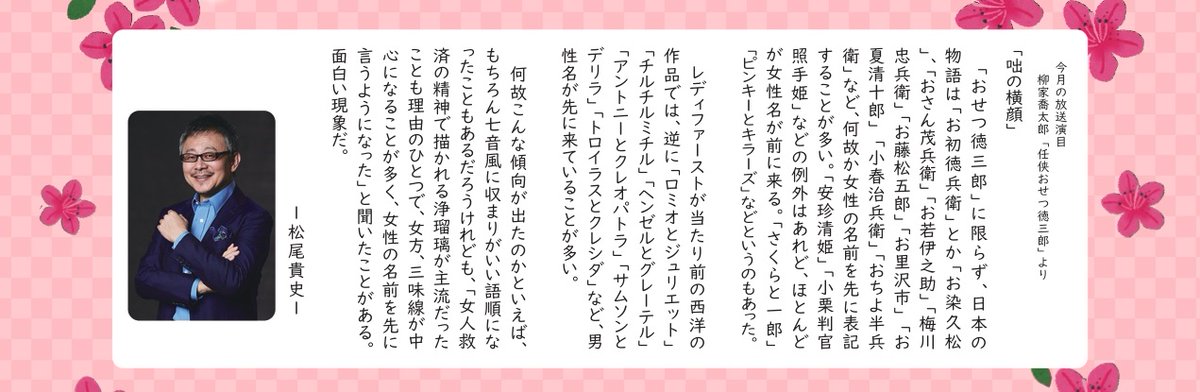 今月の放送演目
柳家喬太郎「任侠おせつ徳三郎」より
「咄の横顔」
「おせつ徳三郎」に限らず、日本の
物語は「お初徳兵衛」とか「お染久松
」、「おさん茂兵衛」「お若伊之助」「梅川
忠兵衛」「お藤松五郎」「お里沢市」「お
夏清十郎」「小春治兵衛」「おちよ半兵
衛」など、何故か女性の名前を先に表記
することが多い。「安珍清姫」「小栗判官
照手姫」などの例外はあれど、ほとんど
が女性名が前に来る。「さくらと一郎」
「ピンキーとキラーズ」などというのもあった。
レディファーストが当たり前の西洋の
作品では、逆に「ロミオとジュリエット」
「チルチルミチル」「ヘンゼルとグレーテル」
「アントニーとクレオパトラ」「サムソンと
デリラ」「トロイラスとクレシダ」など、男
性名が先に来ていることが多い。
何故こんな傾向が出たのかといえば、
もちろん七音風に収まりがいい語順にな
ったこともあるだろうけれども、「女人救
済の精神で描かれる浄瑠璃が主流だった
ことも理由のひとつで、女方、三味線が中
心になることが多く、女性の名前を先に
言うようになった」と聞いたことがある。
面白い現象だ。
ー松尾貴史ー